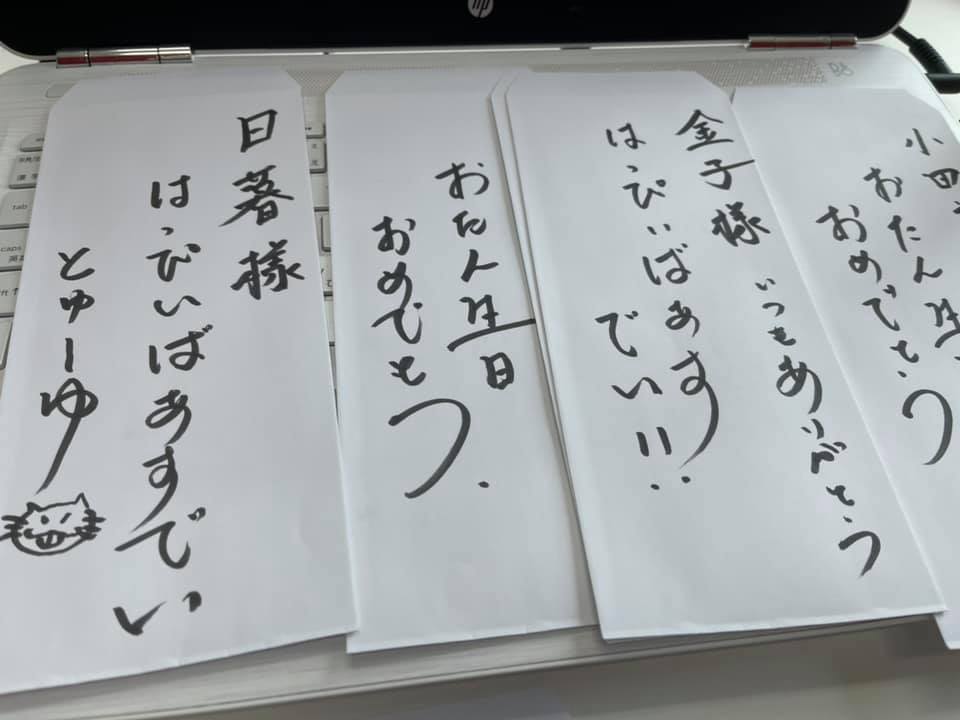 日暮様
はっぴいばあすでい
とゅーゆ
おたん生日
おめでとう.
金子様
はっぴいばあす
でい!!
いつもありがとう
小田
おたん生
おめでとう
hp
tab
caps